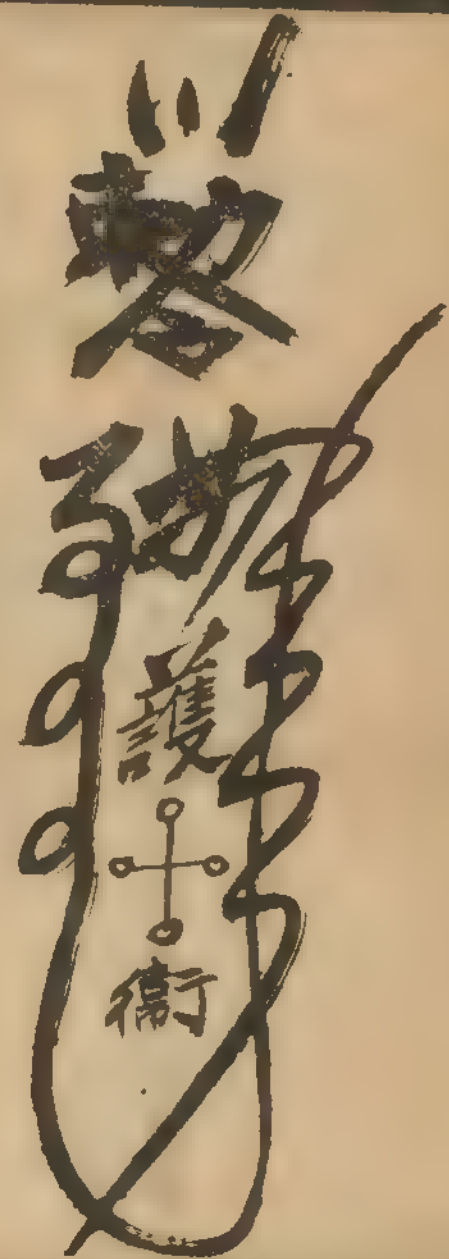 勅令
護
衛